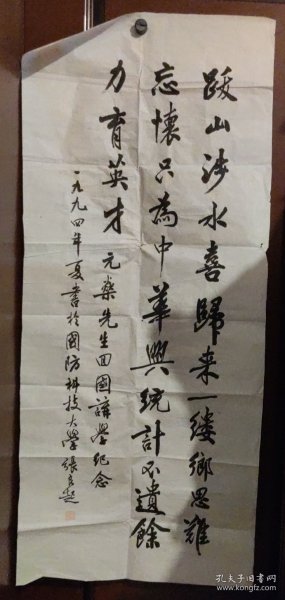 跋山涉水喜歸来一缕鄉思難
忘懷只為中華興統計不遺餘
力育英才
元燊先生回國講學纪念
一九九四年夏書於國防科技大學張良起
孔夫子旧书网
www.kongfz.com